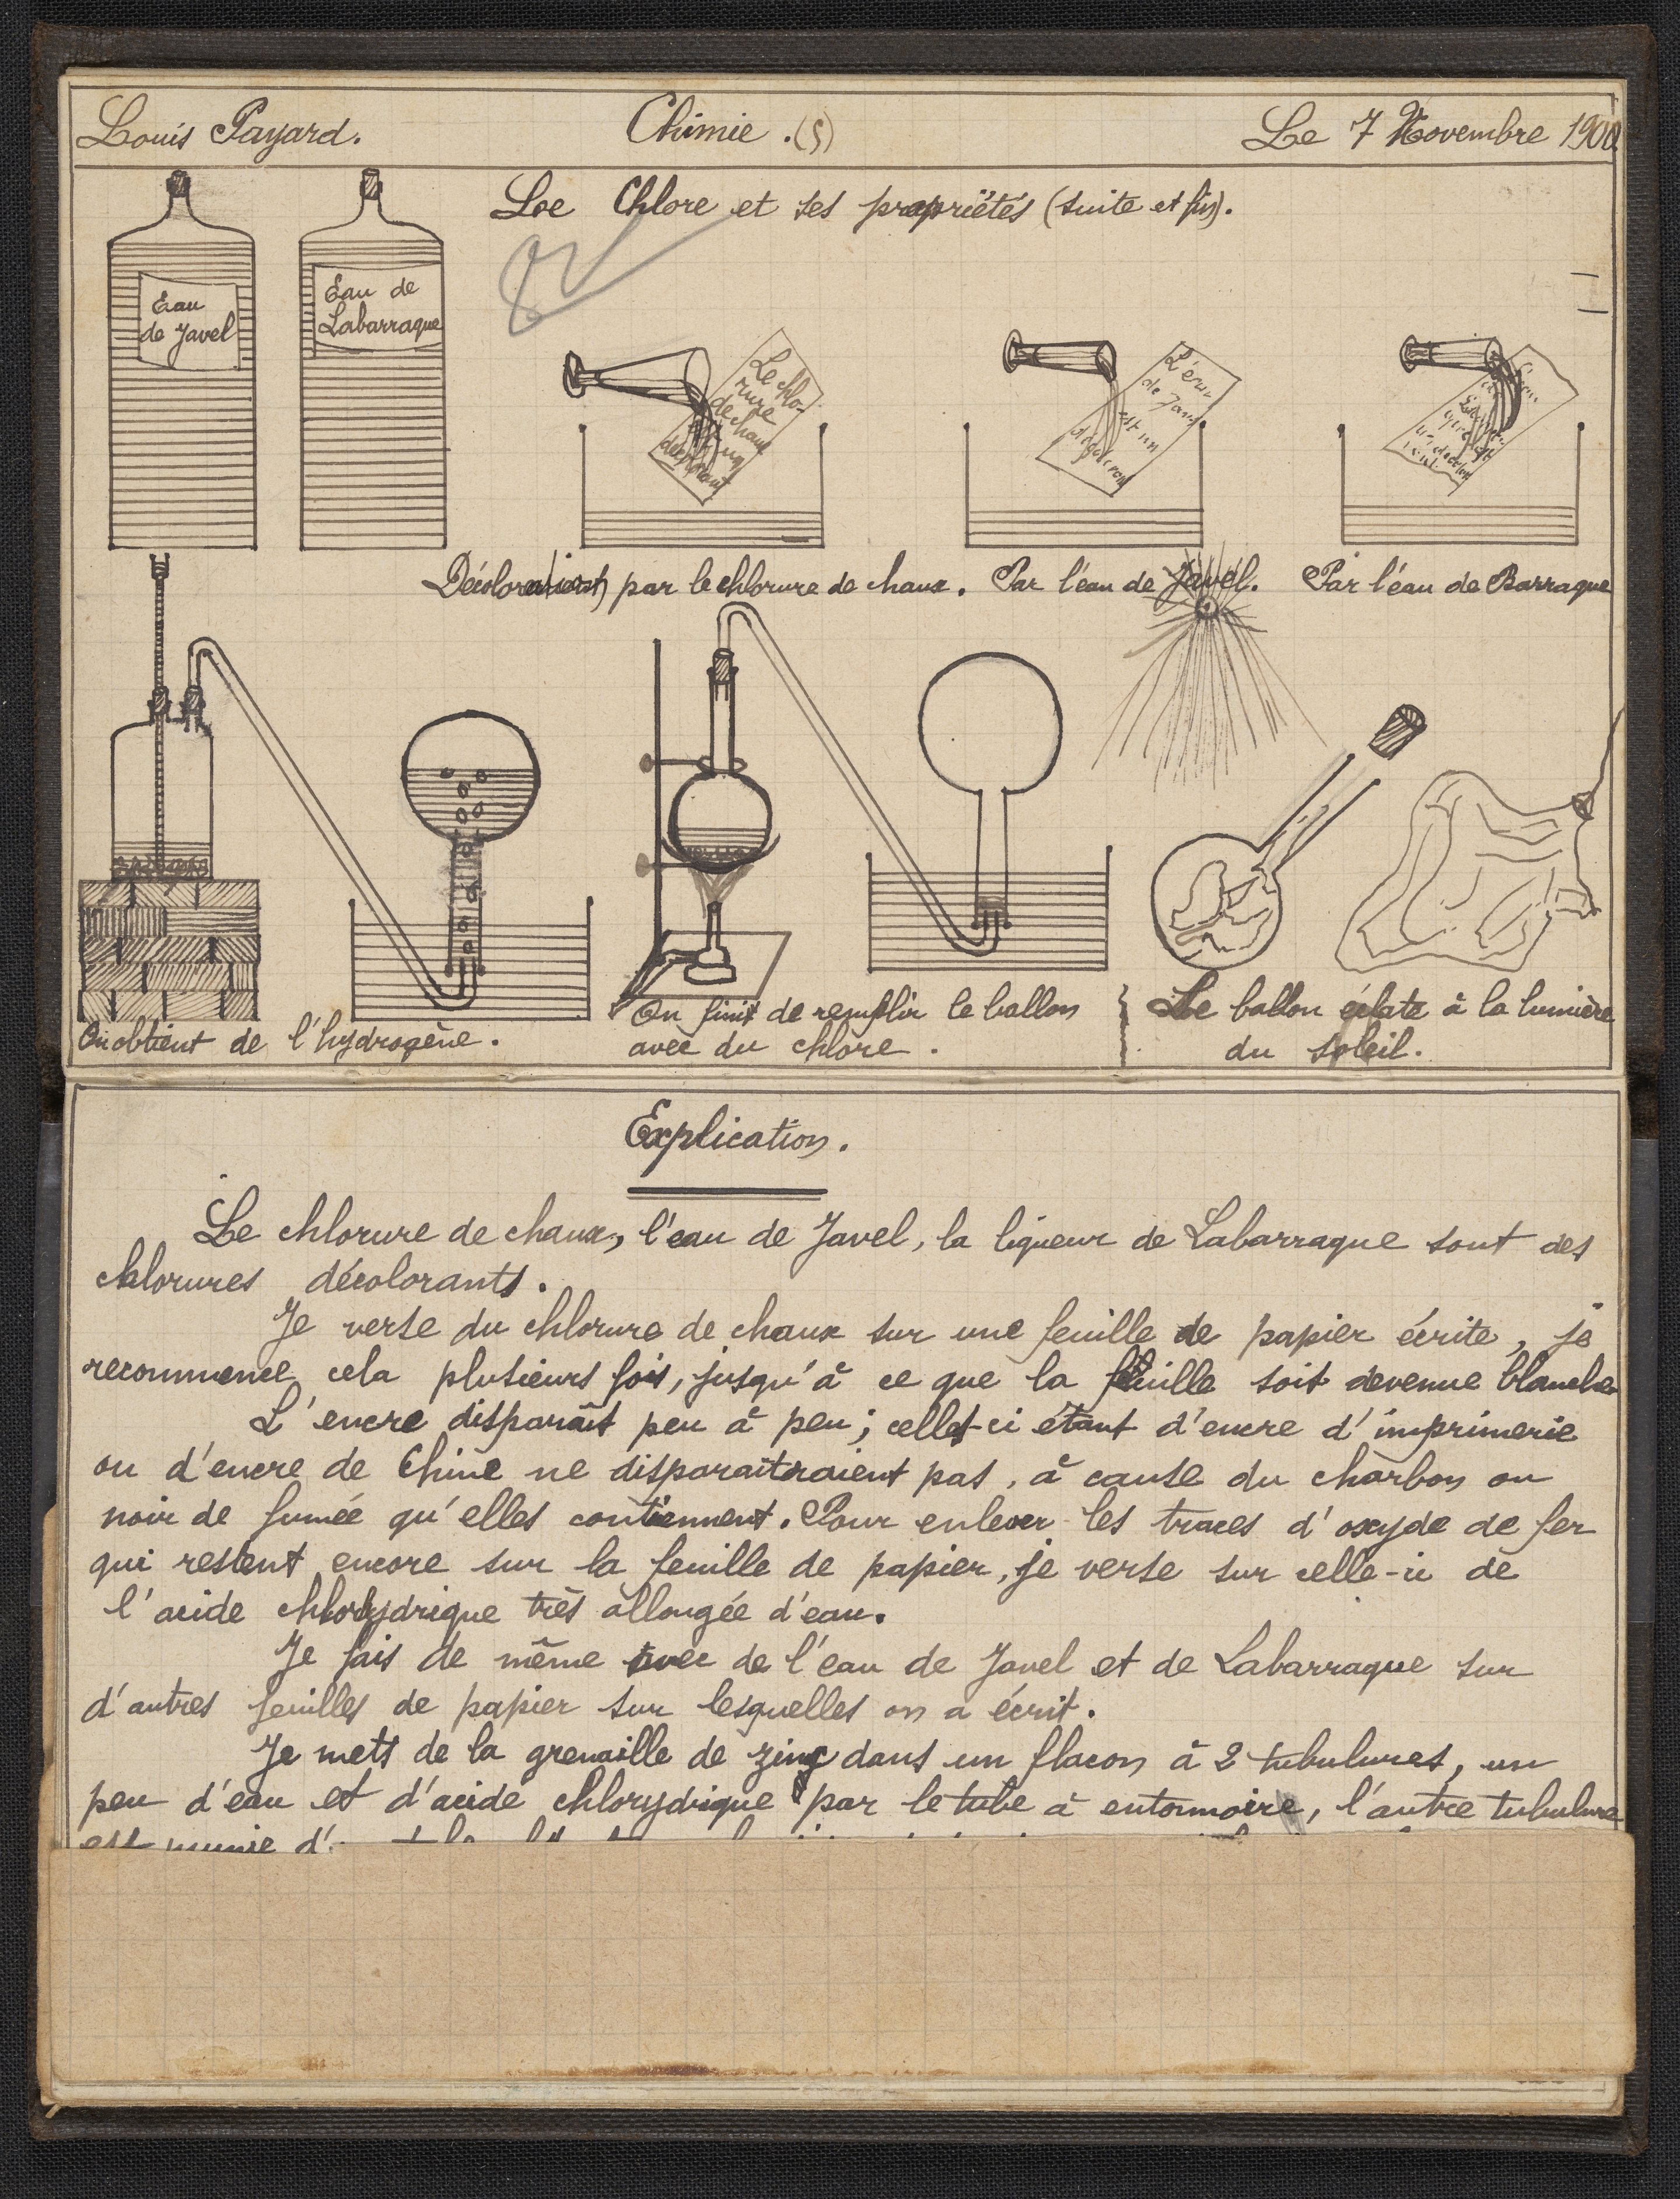 Louis Payard. Chimie .(5) Le 7 Novembre 1900.
Le Chlore et ses propriétés (suite et fin).
Eau
de Javel
Eau de
Labarraque
Le chlo-
rure
de chaux
L'eau
de Javel
est un
Décoloration par le chlorure de chaux. Par l'eau de Javel. Par l'eau de Barraque
On obtient de l'hydrogène.
On finit de remplir le ballon
avec du chlore.
Le ballon éclate à la lumière
du soleil.
Explication.
Le chlorure de chaux, l'eau de Javel, la liqueur de Labarraque sont des
chlorures décolorants.
Je verse du chlorure de chaux sur une feuille de papier écrite, je
recommence cela plusieurs fois, jusqu'à ce que la feuille soit devenue blanche
L'encre disparaît peu à peu; celles-ci étant d'encre d'imprimerie
ou d'encre de Chine ne disparaîtraient pas, à cause du charbon ou
noir de fumée qu'elles contiennent. Pour enlever les traces d'oxyde de fer
qui restent encore sur la feuille de papier, je verse sur celle-ci de
l'acide chlorydrique très allongée d'eau.
Je fais de même avec de l'eau de Javel et de Labarraque sur
d'autres feuilles de papier sur lesquelles on a écrit.
Je mets de la grenaille de zing dans un flacon à 2 tubulures, un
peu d'eau et d'acide chlorydrique par le tube à entonnoire, l'autre tubulure
est munie d'